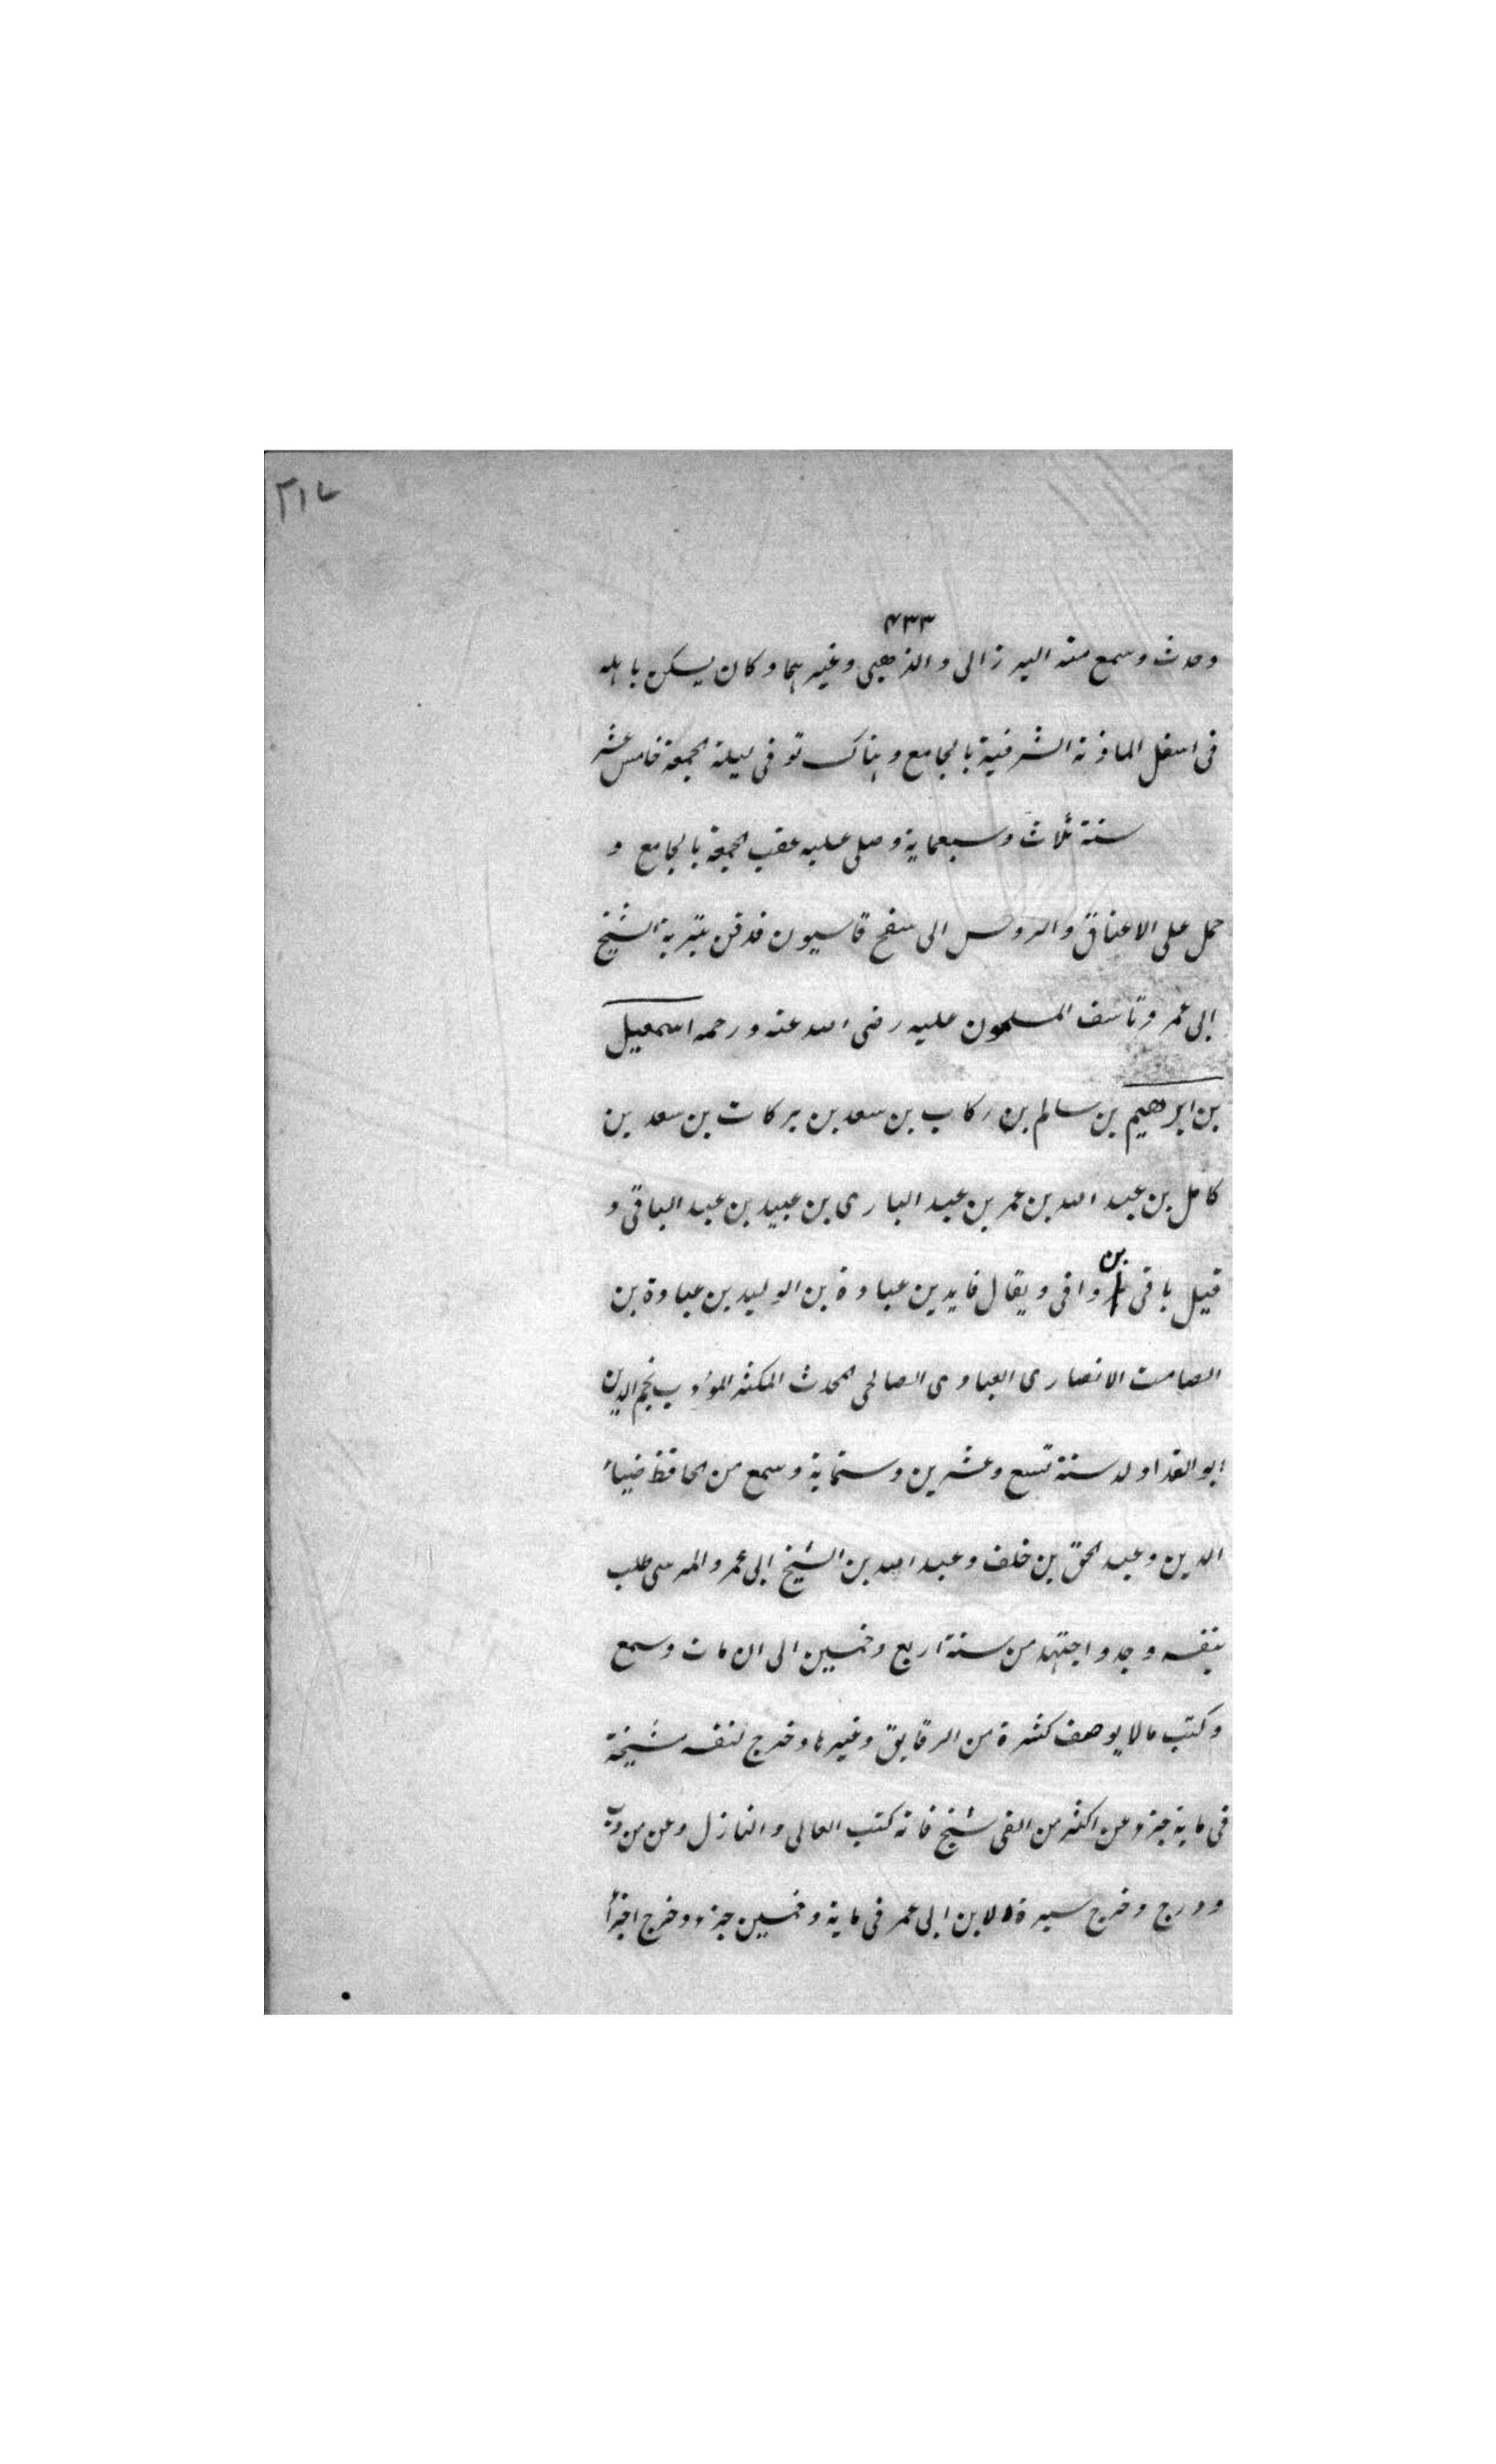 ٢١٧
٤٣٣
وحدث وسمع منه البرزالى والذهبى وغيرهما وكان يسكن باهله
فى اسفل الماذنة الشرقية بالجامع وهناك توفى ليلة الجمعة خامس عشر
سنة ثلاث وسبعماية وصلى عليه عقب الجمعة بالجامع و
حمل على الاعناق والروس الى سفح قاسيون فدفن بتربة الشيخ
ابى عمر وتاسف المسلمون عليه رضى الله عنه ورحمه اسمعيل
بن ابرهيم بن سالم بن ركاب بن سعد بن بركات بن سعد بن
كامل بن عبد الله بن عمر بن عبد البارى بن عبيد بن عبد الباقى و
قيل باقى بن وافى ويقال فايد بن عبادة بن الوليد بن عبادة بن
الصامت الانصارى العبادى الصالحى المحدث المكثر المؤدب نجم الدين
ابو الفدا ولد سنة تسع وعشرين وستماية وسمع من الحافظ ضياء
الدين وعبد الحق بن خلف وعبد الله بن الشيخ ابى عمر والمرسى طلب
بنفسه وجد واجتهد من سنة اربع وخمسين الى ان مات وسمع
وكتب مالا يوصف كثرة من الرقايق وغيرها وخرج لنفسه مشيخة
فى ماية جزء عن اكثر من الفى شيخ فانه كتب العالى والنازل وعن من دب
ودرج وخرج سيرة لابن ابى عمر فى ماية وخمسين جزء وخرج اجزأ